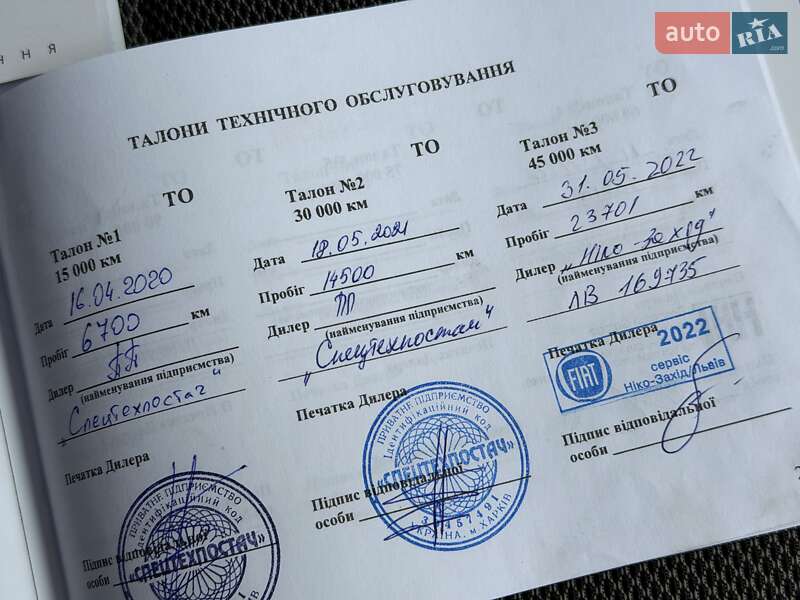 auto RIA.com
ННЯ
ТАЛОНИ ТЕХНІЧНОГО ОБСЛУГОВУВАННЯ
ТО
Талон №1
15 000 км
Дата 16.04.2020
Пробіг 6700 км
Дилер ПП
(найменування підприємства)
„Спецтехпостач"
Печатка Дилера
ПРИВАТНЕ ПІДПРИЄМСТВО
Ідентифікаційний код
«СПЕЦТЕХПОСТАЧ»
Підпис відповідальної
особи
ТО
Талон №2
30 000 км
Дата 18.05.2021
Пробіг 14500 км
Дилер ПП
(найменування підприємства)
„Спецтехпостач"
Печатка Дилера
ПРИВАТНЕ ПІДПРИЄМСТВО
Ідентифікаційний код
«СПЕЦТЕХПОСТАЧ»
УКРАЇНА, м.ХАРКІВ
Підпис відповідальної
особи
ТО
Талон №3
45 000 км
Дата 31.05.2022
Пробіг 23701 км
Дилер „Ніко-Захід"
(найменування підприємства)
ЛВ 169735
Печатка Дилера
FIAT
2022
сервіс
Ніко-Захід/Львів
Підпис відповідальної
особи